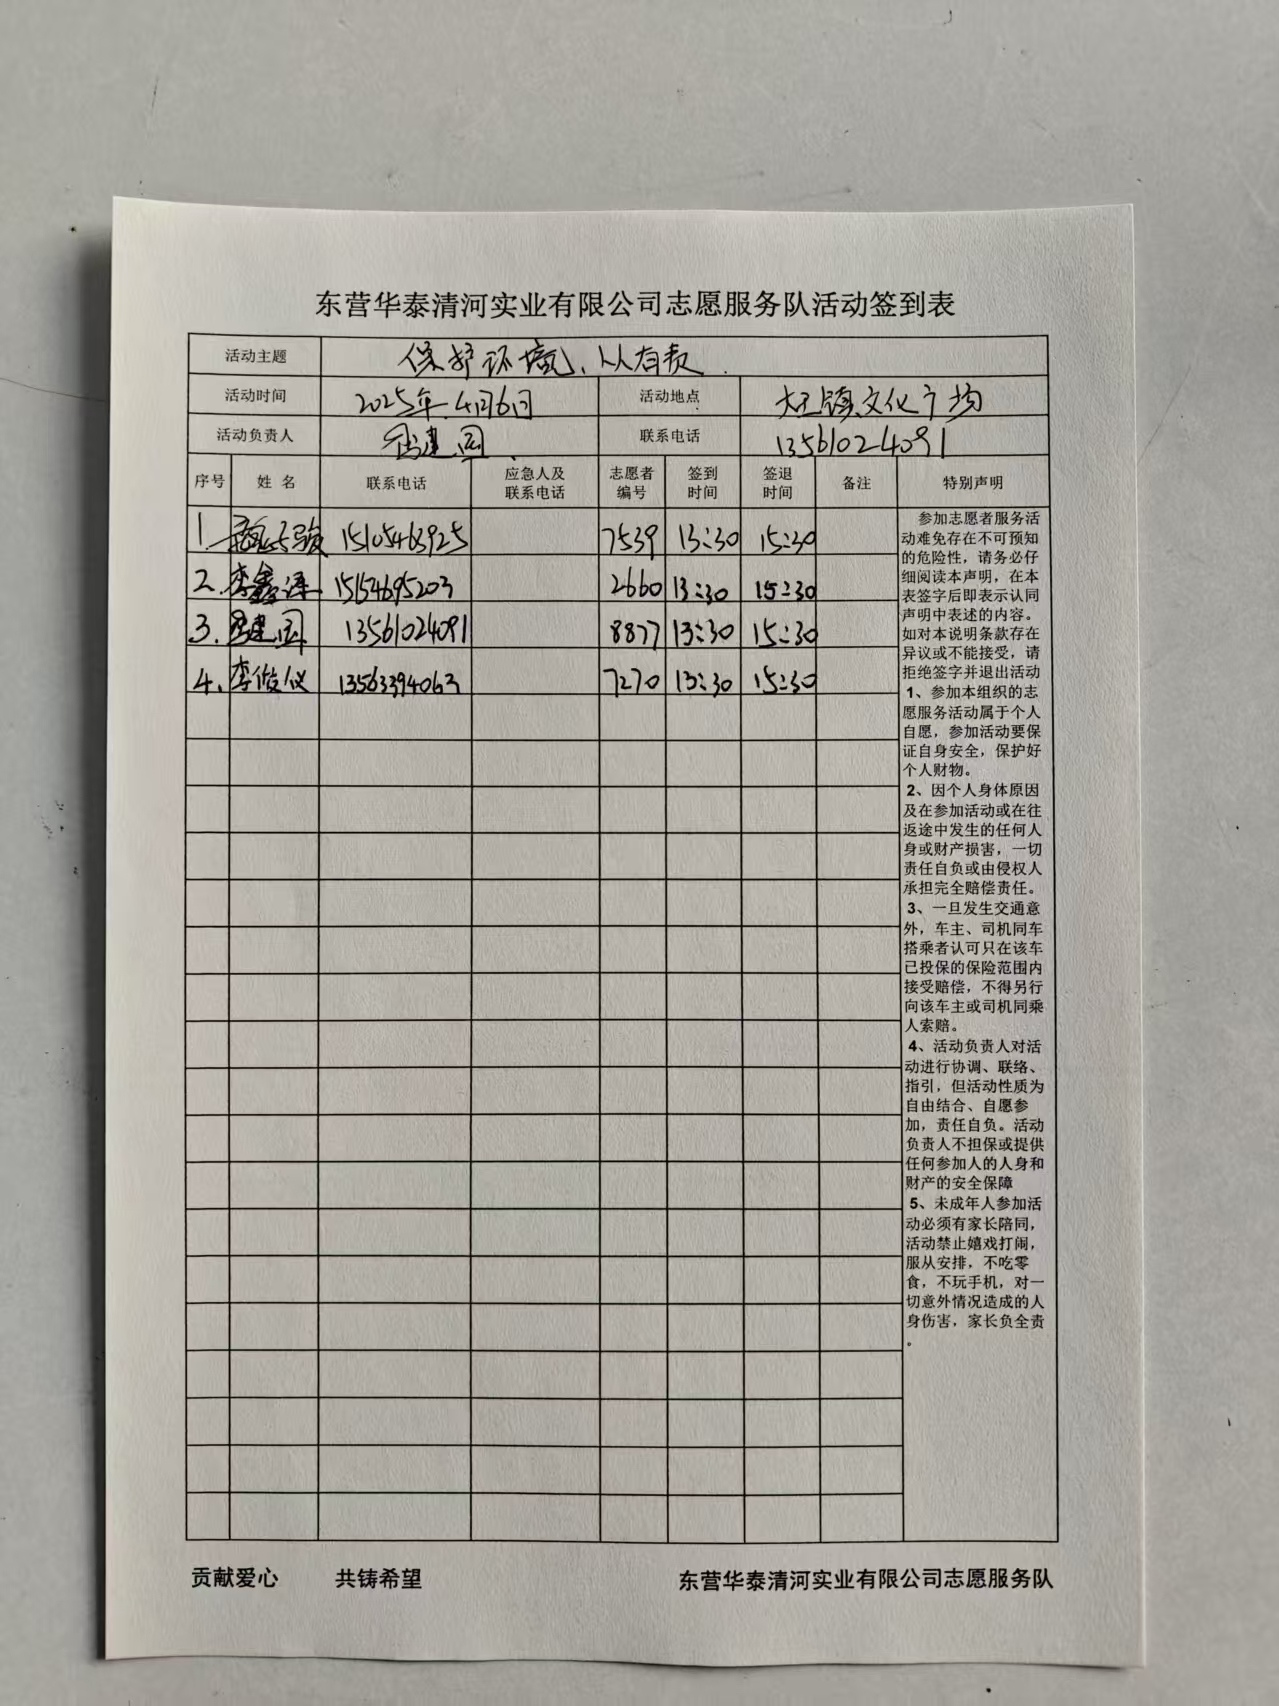 东营华泰清河实业有限公司志愿服务队活动签到表
活动主题 保护环境、人人有责.
活动时间 2025年.4月6日 活动地点 大王镇文化广场
活动负责人 建国 联系电话 13561024091
序号 姓名 联系电话 应急人及联系电话 志愿者编号 签到时间 签退时间 备注 特别声明
1. 15105463925 7539 13:30 15:30
2. 李鑫泽 15154695203 2660 13:30 15:30
3. 建国 13561024091 8877 13:30 15:30
4. 李俊仪 13563394063 7270 13:30 15:30
参加志愿者服务活
动难免存在不可预知
的危险性，请务必仔
细阅读本声明，在本
表签字后即表示认同
声明中表述的内容。
如对本说明条款存在
异议或不能接受，请
拒绝签字并退出活动
1、参加本组织的志
愿服务活动属于个人
自愿，参加活动要保
证自身安全，保护好
个人财物。
2、因个人身体原因
及在参加活动或在往
返途中发生的任何人
身或财产损害，一切
责任自负或由侵权人
承担完全赔偿责任。
3、一旦发生交通意
外，车主、司机同车
搭乘者认可只在该车
已投保的保险范围内
接受赔偿，不得另行
向该车主或司机同乘
人索赔。
4、活动负责人对活
动进行协调、联络、
指引，但活动性质为
自由结合、自愿参
加，责任自负。活动
负责人不担保或提供
任何参加人的人身和
财产的安全保障
5、未成年人参加活
动必须有家长陪同，
活动禁止嬉戏打闹，
服从安排，不吃零
食，不玩手机，对一
切意外情况造成的人
身伤害，家长负全责
。
贡献爱心 共铸希望 东营华泰清河实业有限公司志愿服务队